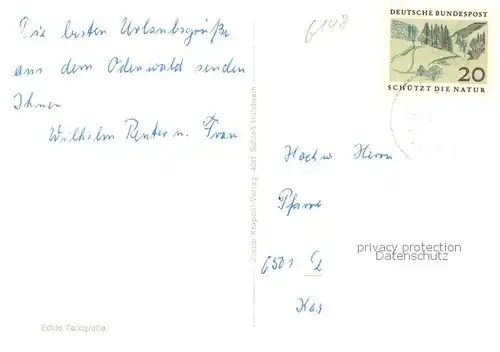 Die besten Urlaubsgrüße
aus dem Odenwald senden
Ihnen
Wilhelm Reuter u. Frau
6148
DEUTSCHE BUNDESPOST
20
SCHÜTZT DIE NATUR
Hochw Herrn
Pfarre
6501
Kas
privacy protection
Datenschutz
Echte Fotografie